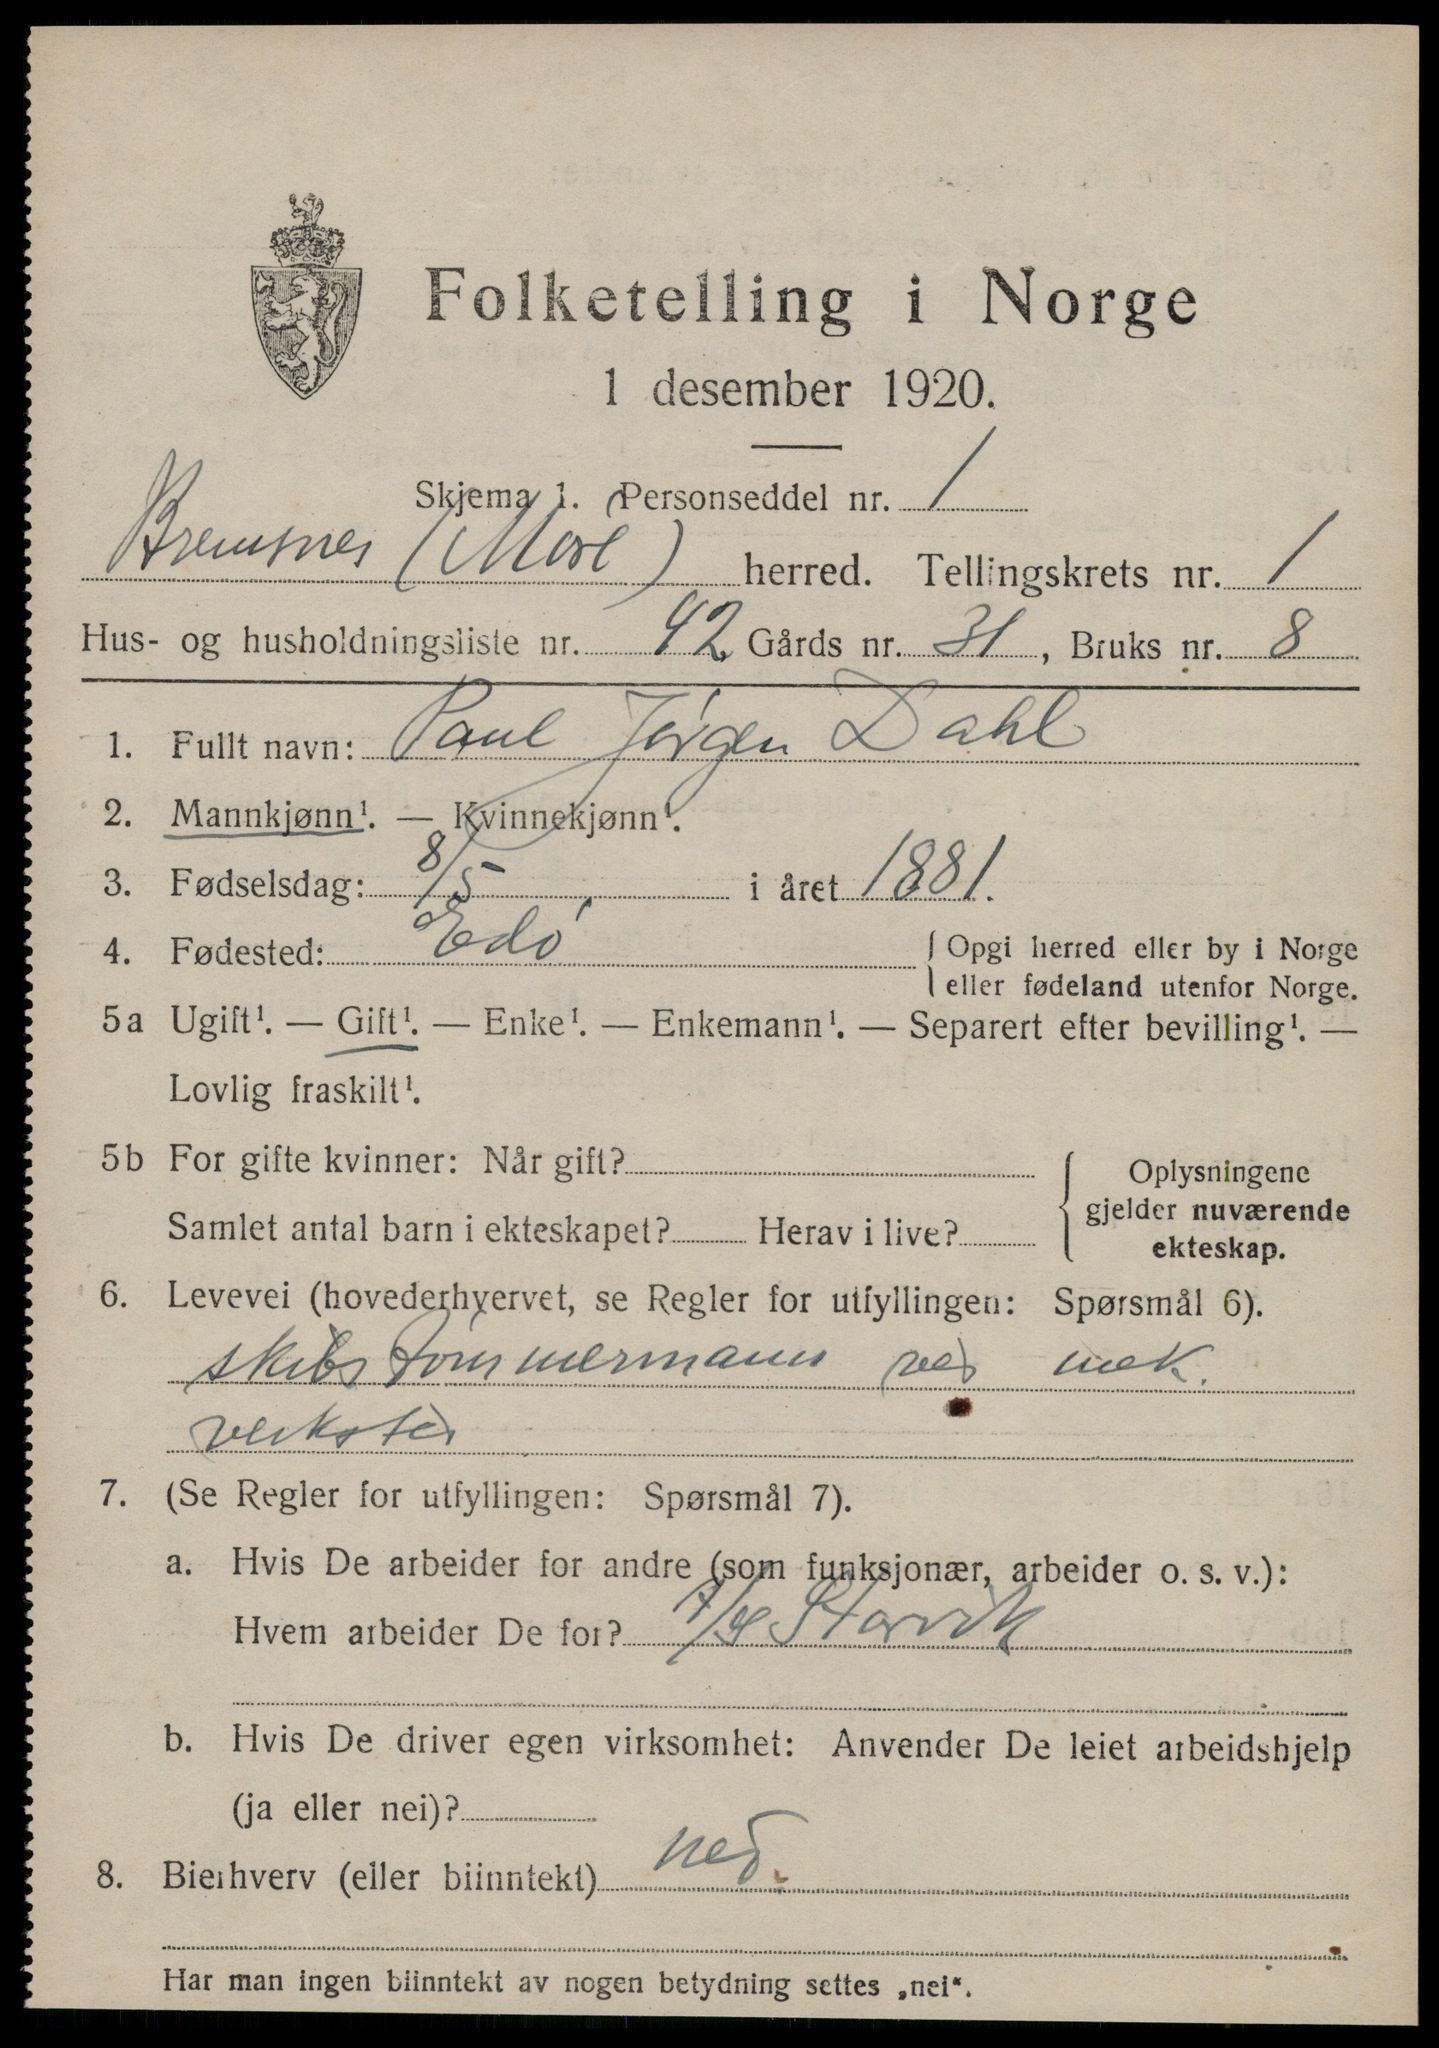 Folketelling i Norge
1 desember 1920.
Skjema 1. Personseddel nr. 1
Bremsnes (Møre) herred. Tellingskrets nr. 1
Hus- og husholdningsliste nr. 42, Gårds nr. 31, Bruks nr. 8
1. Fullt navn: Paul Jørgen Dahl
2. Mannkjønn¹. — Kvinnekjønn¹.
3. Fødselsdag: 8/5 i året 1881.
4. Fødested: Edö { Opgi herred eller by i Norge
eller fødeland utenfor Norge.
5a Ugift¹. — Gift¹. — Enke¹. — Enkemann¹. — Separert efter bevilling¹. —
Lovlig fraskilt¹.
5b For gifte kvinner: Når gift?
Samlet antal barn i ekteskapet? Herav i live?
{ Oplysningene
gjelder nuværende
ekteskap.
6. Levevei (hovederhvervet, se Regler for utfyllingen: Spørsmål 6).
skibstömmermann ved mek.
verksted
7. (Se Regler for utfyllingen: Spørsmål 7).
a. Hvis De arbeider for andre (som funksjonær, arbeider o. s. v.):
Hvem arbeider De for? A/S Storvik
b. Hvis De driver egen virksomhet: Anvender De leiet arbeidshjelp
(ja eller nei)?
8. Bierhverv (eller biinntekt) nei.
Har man ingen biinntekt av nogen betydning settes „nei“.